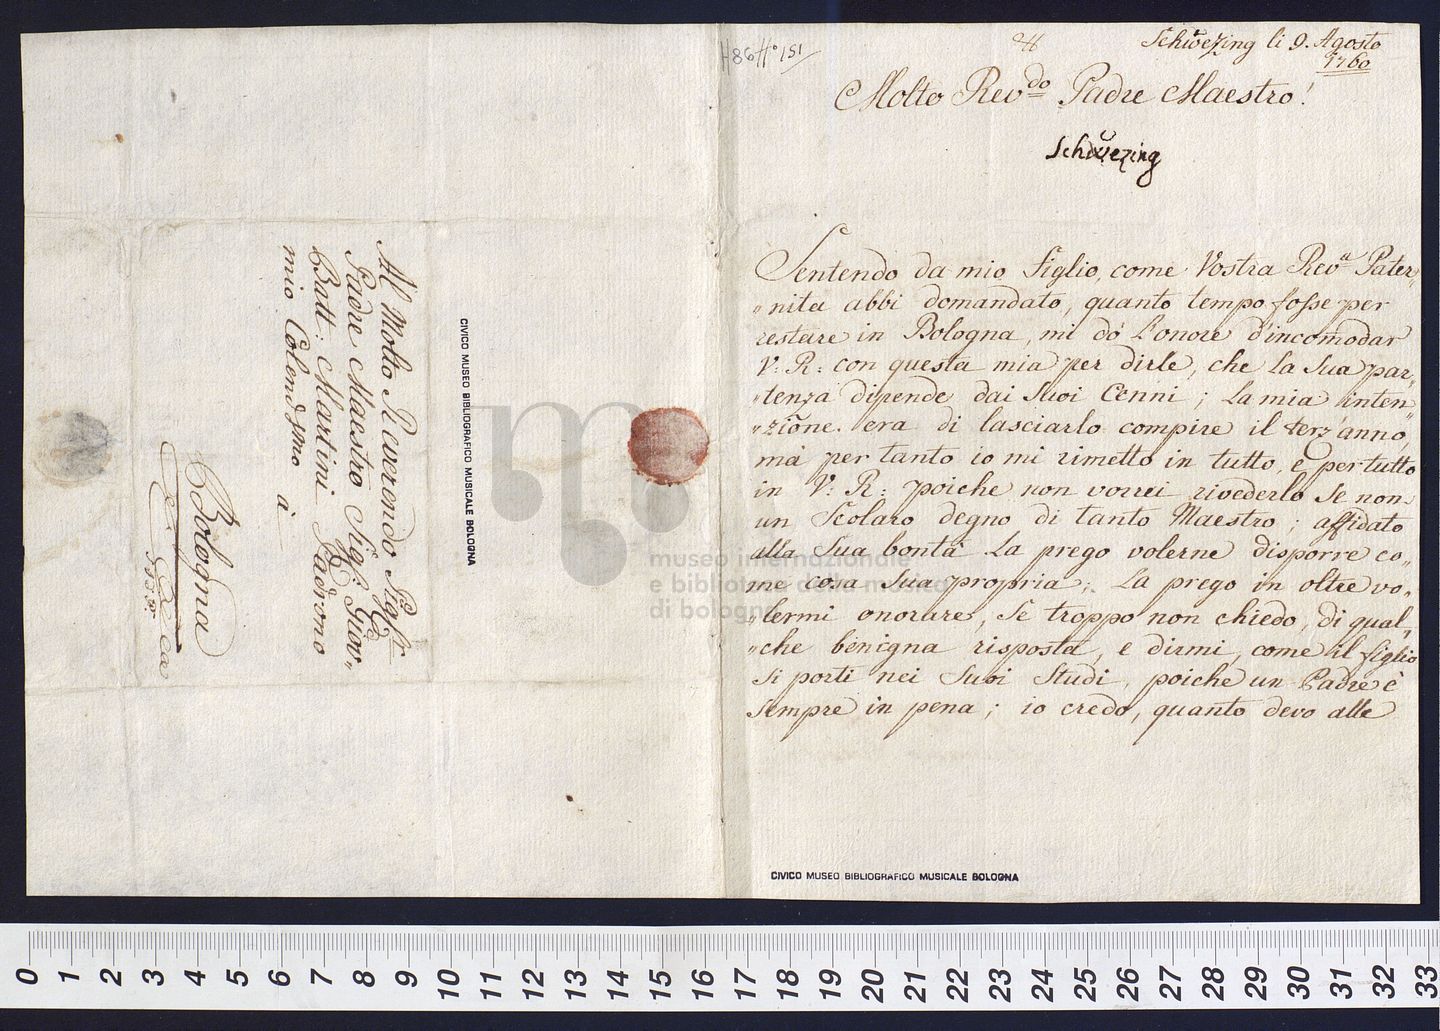 H86 n° 151
Schwezing li 9. Agosto
1760
Molto Rev:do Padre Maestro!
Schwezing
Sentendo da mio figlio, come Vostra Rev:a Pater„
„nita abbi domandato, quanto tempo fosse per
restare in Bologna, mi dò l'onore d'incomodar
V: R: con questa mia per dirle, che la Sua par„
„tenza dipende dai Suoi Cenni; la mia inten„
„zione era di lasciarlo compire il terz'anno,
mà per tanto io mi rimetto in tutto, e per tutto
in V: R: poiche non vorrei rivederlo Se non
un Scolaro degno di tanto Maestro; affidato
alla Sua bontà La prego volerne disporre co„
me cosa Sua propria; La prego in oltre vo„
„lermi onorare, Se troppo non chiedo, di qual„
„che benigna risposta, e dirmi, come il figlio
Si porti nei Suoi Studi, poiche un Padre è
Sempre in pena; io credo, quanto devo alle
CIVICO MUSEO BIBLIOGRAFICO MUSICALE BOLOGNA
Al Molto Reverendo
Padre Maestro Sig: Giov„
Batt: Martini Padrono
mio Colendsmo
à
Bologna
CIVICO MUSEO BIBLIOGRAFICO MUSICALE BOLOGNA
museo internazionale
e biblioteca della musica
di bologna
0 1 2 3 4 5 6 7 8 9 10 11 12 13 14 15 16 17 18 19 20 21 22 23 24 25 26 27 28 29 30 31 32 33